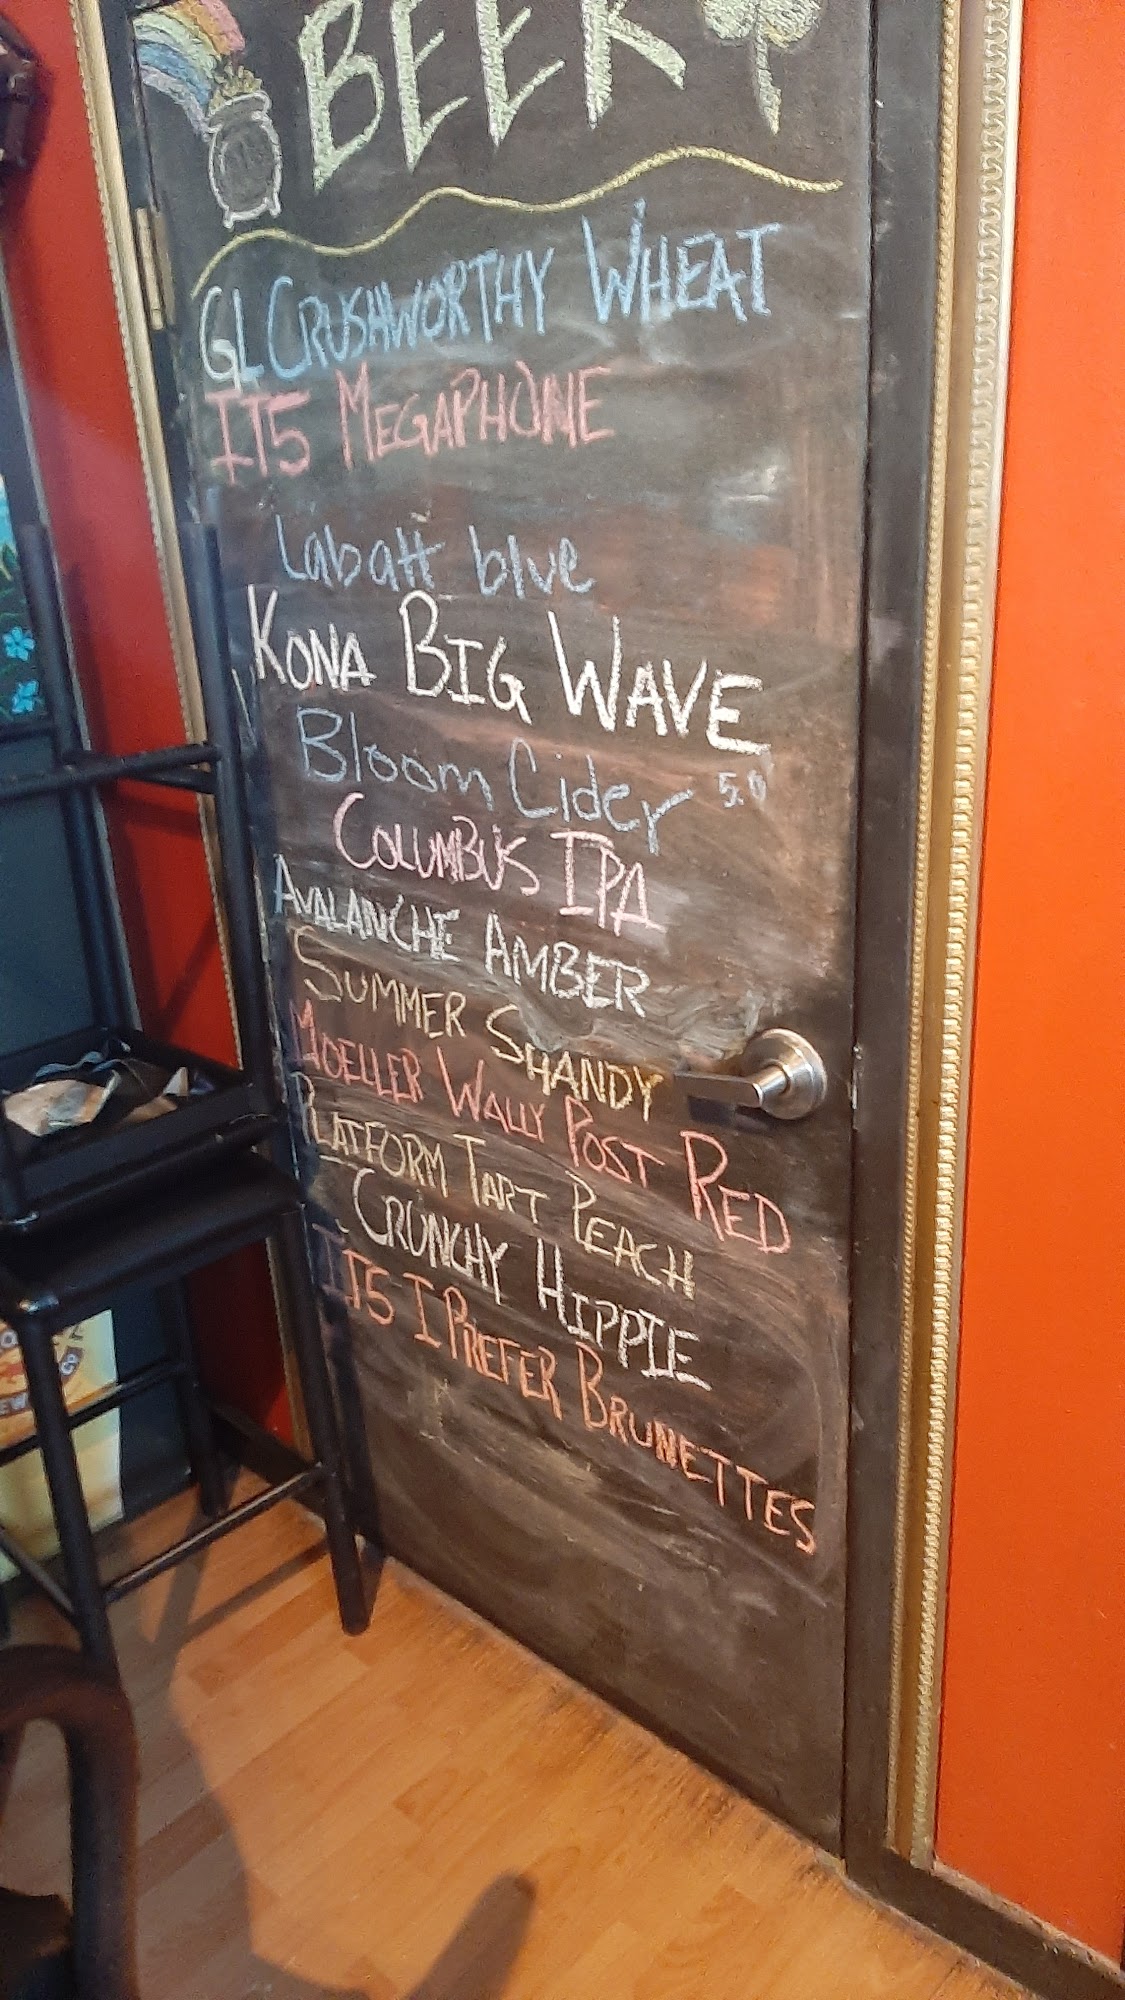 BEER
GL CRUSHWORTHY WHEAT
IT5 MEGAPHONE
Labatt blue
KONA BIG WAVE
Bloom Cider 5.0
COLUMBUS IPA
AVALANCHE AMBER
SUMMER SHANDY
MOELLER WALLY POST RED
PLATFORM TART PEACH
CRUNCHY HIPPIE
IT5 I PREFER BRUNETTES